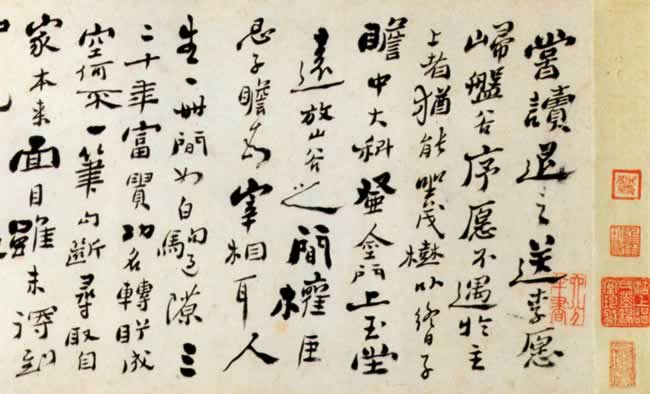 嘗讀退之送李愿
歸盤谷序愿不遇於主
上者猶能坐茂樹以終日子
瞻中大科登金門上玉堂
遠放山谷之間權臣
忌子瞻為宰相耳人
生一世間如白駒過隙三
二十年富貴功名轉盼成
空何不一筆勾斷尋取自
家本來面目雖未得到